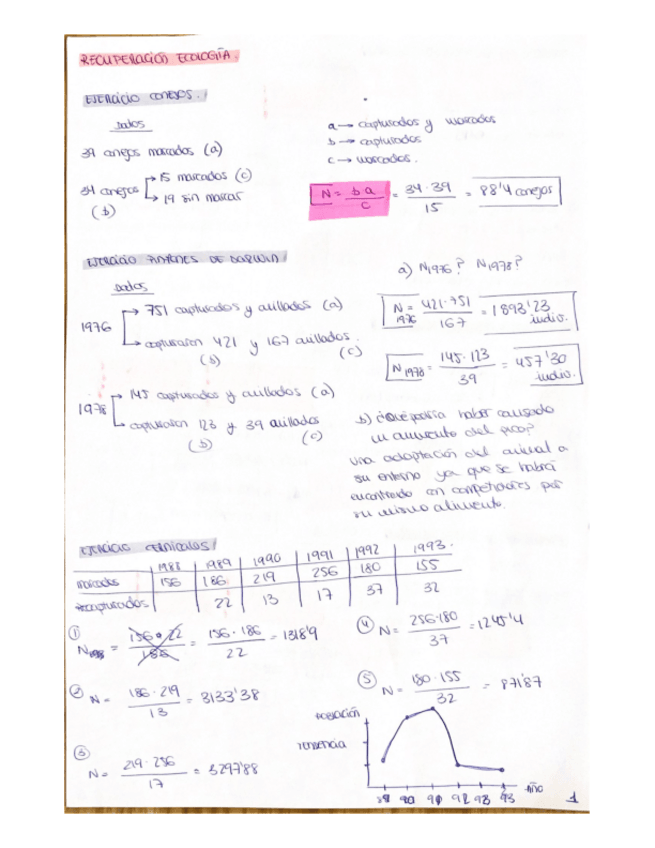 RECUPERACIÓN ECOLOGÍA.
EJERCICIO CONEJOS.
Datos
39 conejos marcados (a)
34 conejos
15 marcados (c)
19 sin marcar
(b)
a → capturados y marcados
b → capturados
c → marcados.
N = b a / c = 34·39 / 15 = 88'4 conejos
EJERCICIO PINZONES DE DARWIN
Datos
1976
751 capturados y anillados (a)
capturaron 421 y 167 anillados.
(b) (c)
1978
145 capturados y anillados (a)
capturaron 123 y 39 anillados
(b) (c)
a) N1976? N1978?
N 1976 = 421·751 / 167 = 1893'23 indiv.
N 1978 = 145·123 / 39 = 457'30 indiv.
b) ¿Qué podría haber causado
un aumento del pico?
Una adaptación del animal a
su entorno ya que se habrá
encontrado con competidores por
su mismo alimento.
EJERCICIO CERNÍCALOS
1988 1989 1990 1991 1992 1993.
marcados 156 186 219 256 180 155
recapturados 22 13 17 37 32
① N = 156·22 / 186 = 156·186 / 22 = 1318'9
② N = 186·219 / 13 = 3133'38
③ N = 219·256 / 17 = 3297'88
④ N = 256·180 / 37 = 1245'4
⑤ N = 180·155 / 32 = 871'87
población
tendencia
año
89 90 91 92 93 93
1